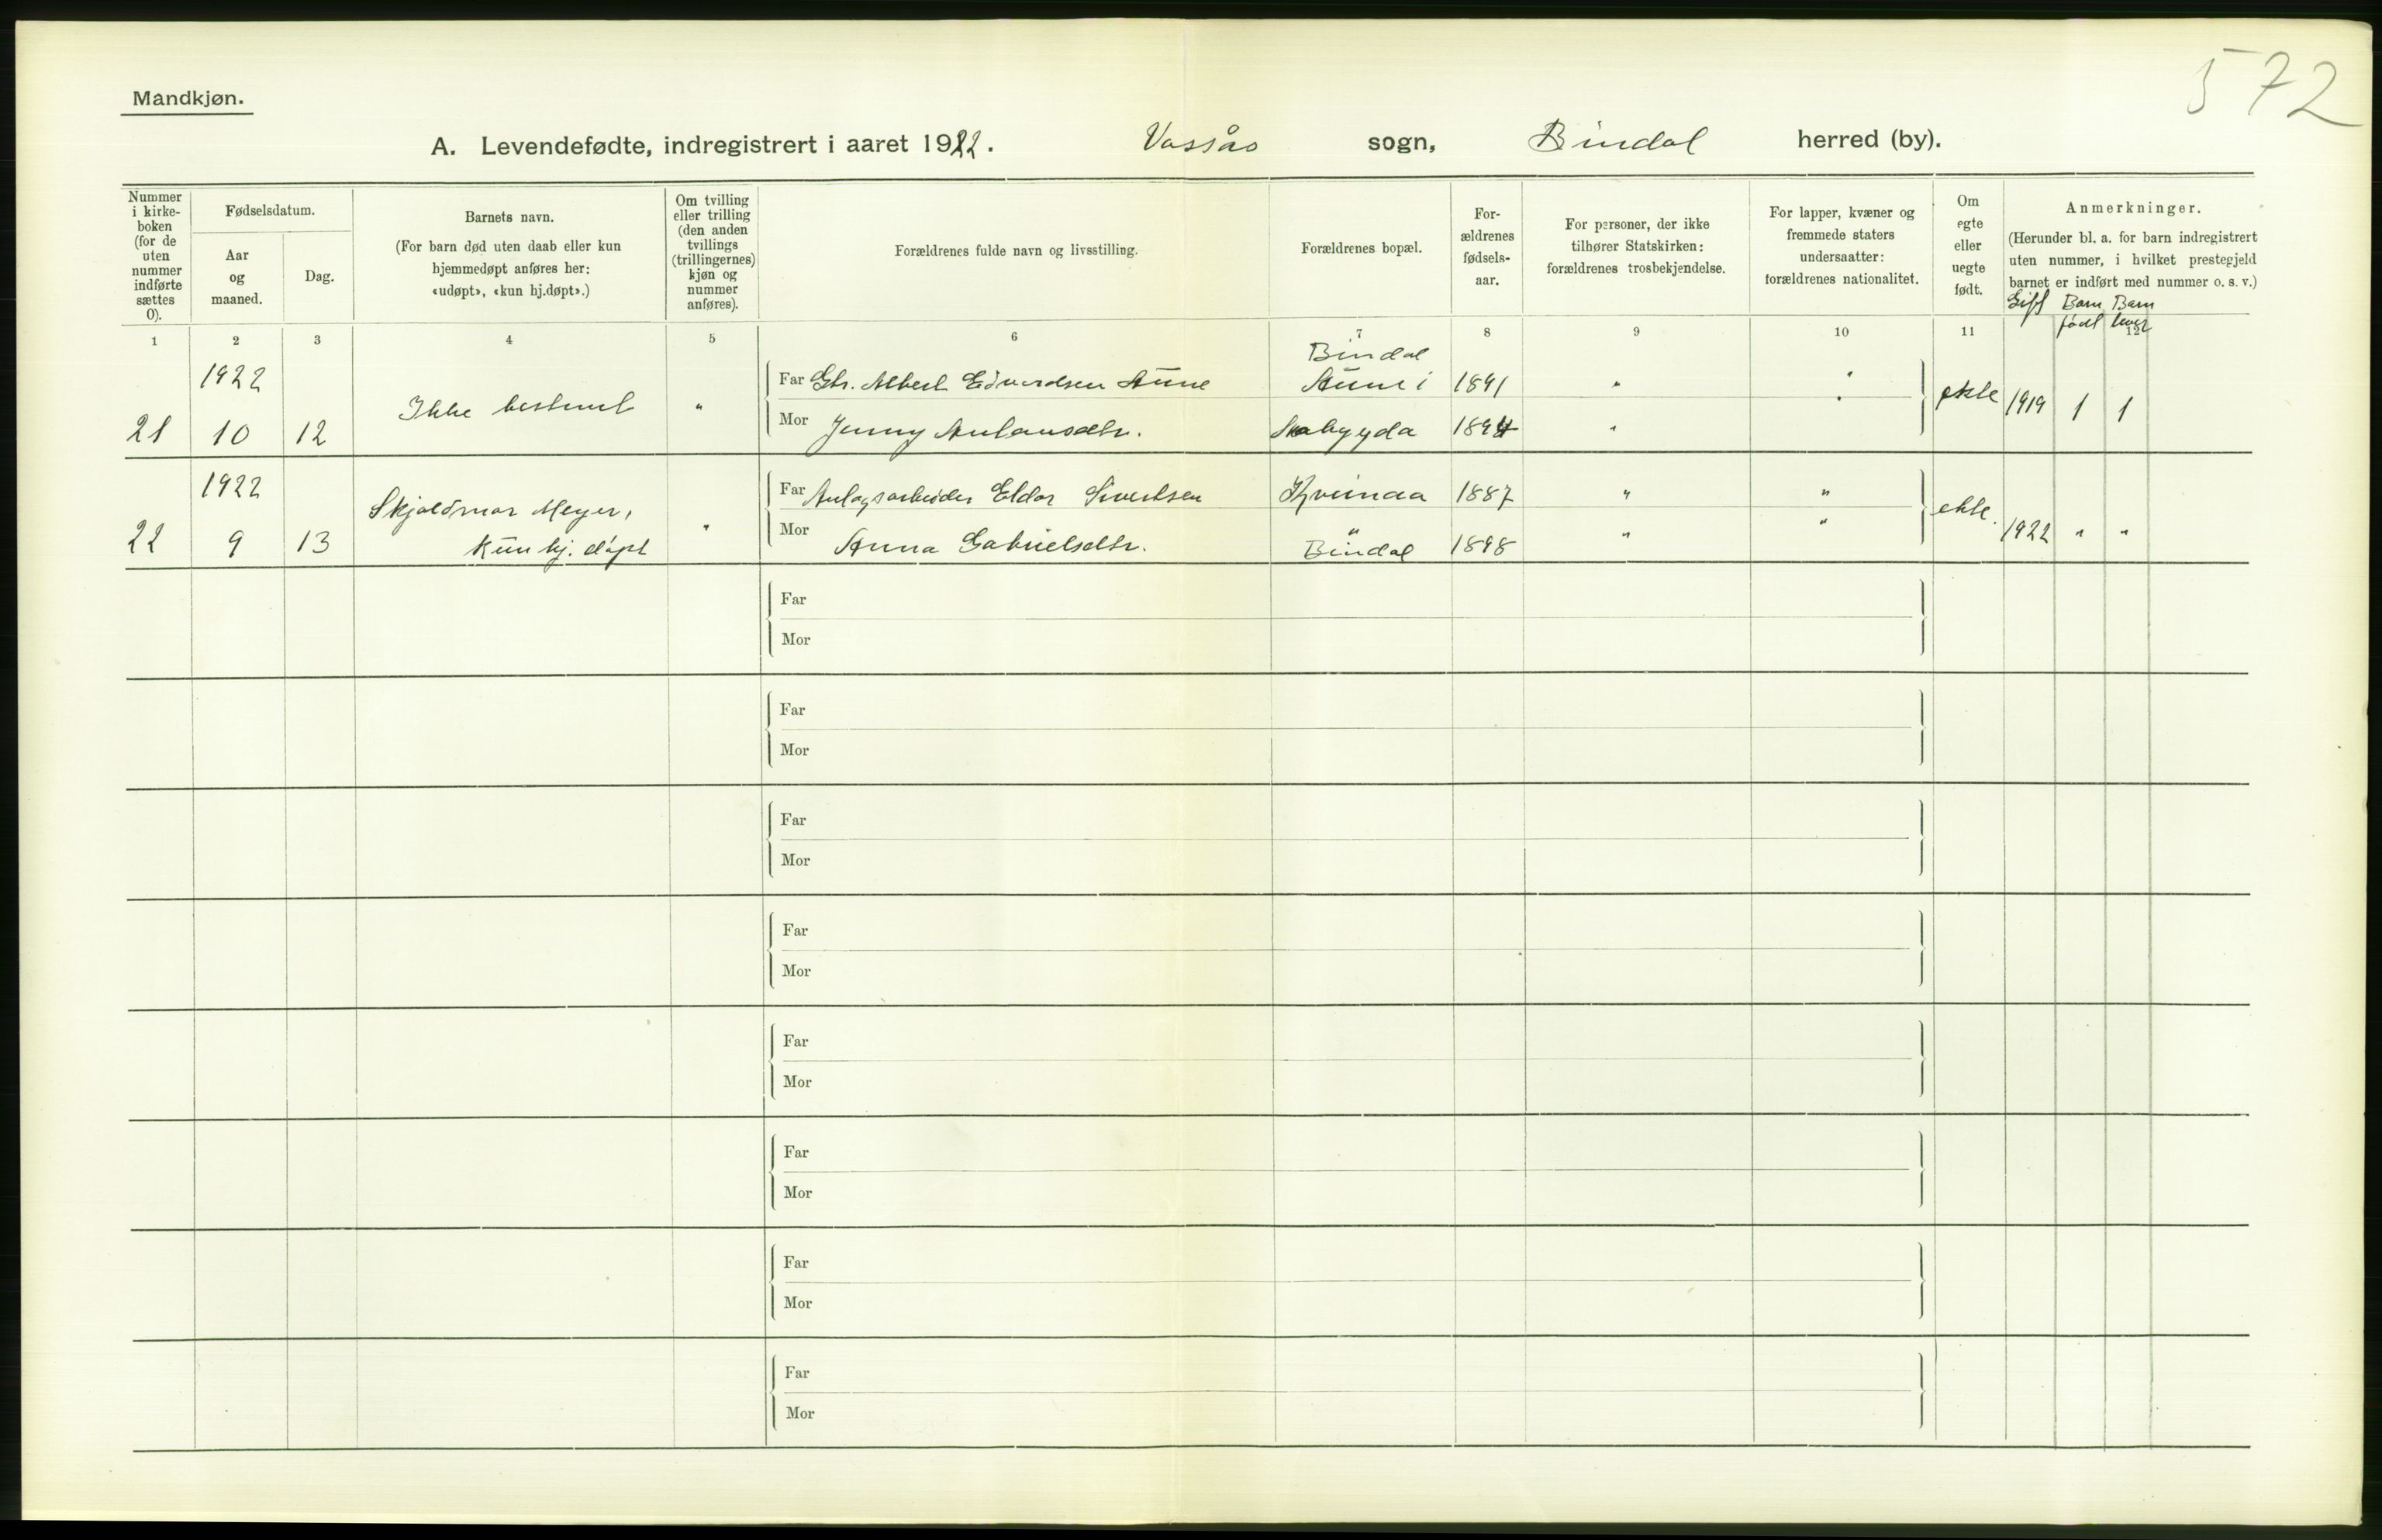 572
Mandkjøn.
A. Levendefødte, indregistrert i aaret 1922. Vassås sogn, Bindal herred (by).
Nummer i kirke-boken (for de uten nummer indførte sættes 0).
Fødselsdatum.
Aar og maaned.
Dag.
Barnets navn.
(For barn død uten daab eller kun hjemmedøpt anføres her: «udøpt», «kun hj.døpt».)
Om tvilling eller trilling (den anden tvillings (trillingernes) kjøn og nummer anføres).
Forældrenes fulde navn og livsstilling.
Forældrenes bopæl.
For-ældrenes fødsels-aar.
For personer, der ikke tilhører Statskirken: forældrenes trosbekjendelse.
For lapper, kvæner og fremmede staters undersaatter: forældrenes nationalitet.
Om egte eller uegte født.
Anmerkninger.
(Herunder bl. a. for barn indregistrert uten nummer, i hvilket prestegjeld barnet er indført med nummer o. s. v.)
Gift Barn født Barn lever
1 2 3 4 5 6 7 8 9 10 11 12
1922 Bindal
Far Gbr. Albert Edvardsen Aune Aune i 1891 " "
21 10 12 Ikke bestemt " ekte 1919 1 1
Mor Jenny 1894 " "
1922 Far Anlagsarbeider Eldor Sivertsen 1887 " "
Skjoldmar Meyer, " ekte.
22 9 13 kun hj. døpt Mor Anna Gabrielsdtr. " Bindal 1898 " " 1922 " "
Far
Mor
Far
Mor
Far
Mor
Far
Mor
Far
Mor
Far
Mor
Far
Mor
Far
Mor